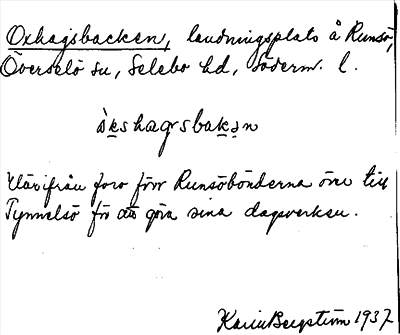 Oxhagsbacken, landningsplats å Runsö,
Överselö sn, Selebo hd, Söderm. l.
ɷ̀kshagsbakən
Härifrån foro förr Runsöbönderna över till
Tynnelsö för att göra sina dagsverken.
Karin Bergström 1937